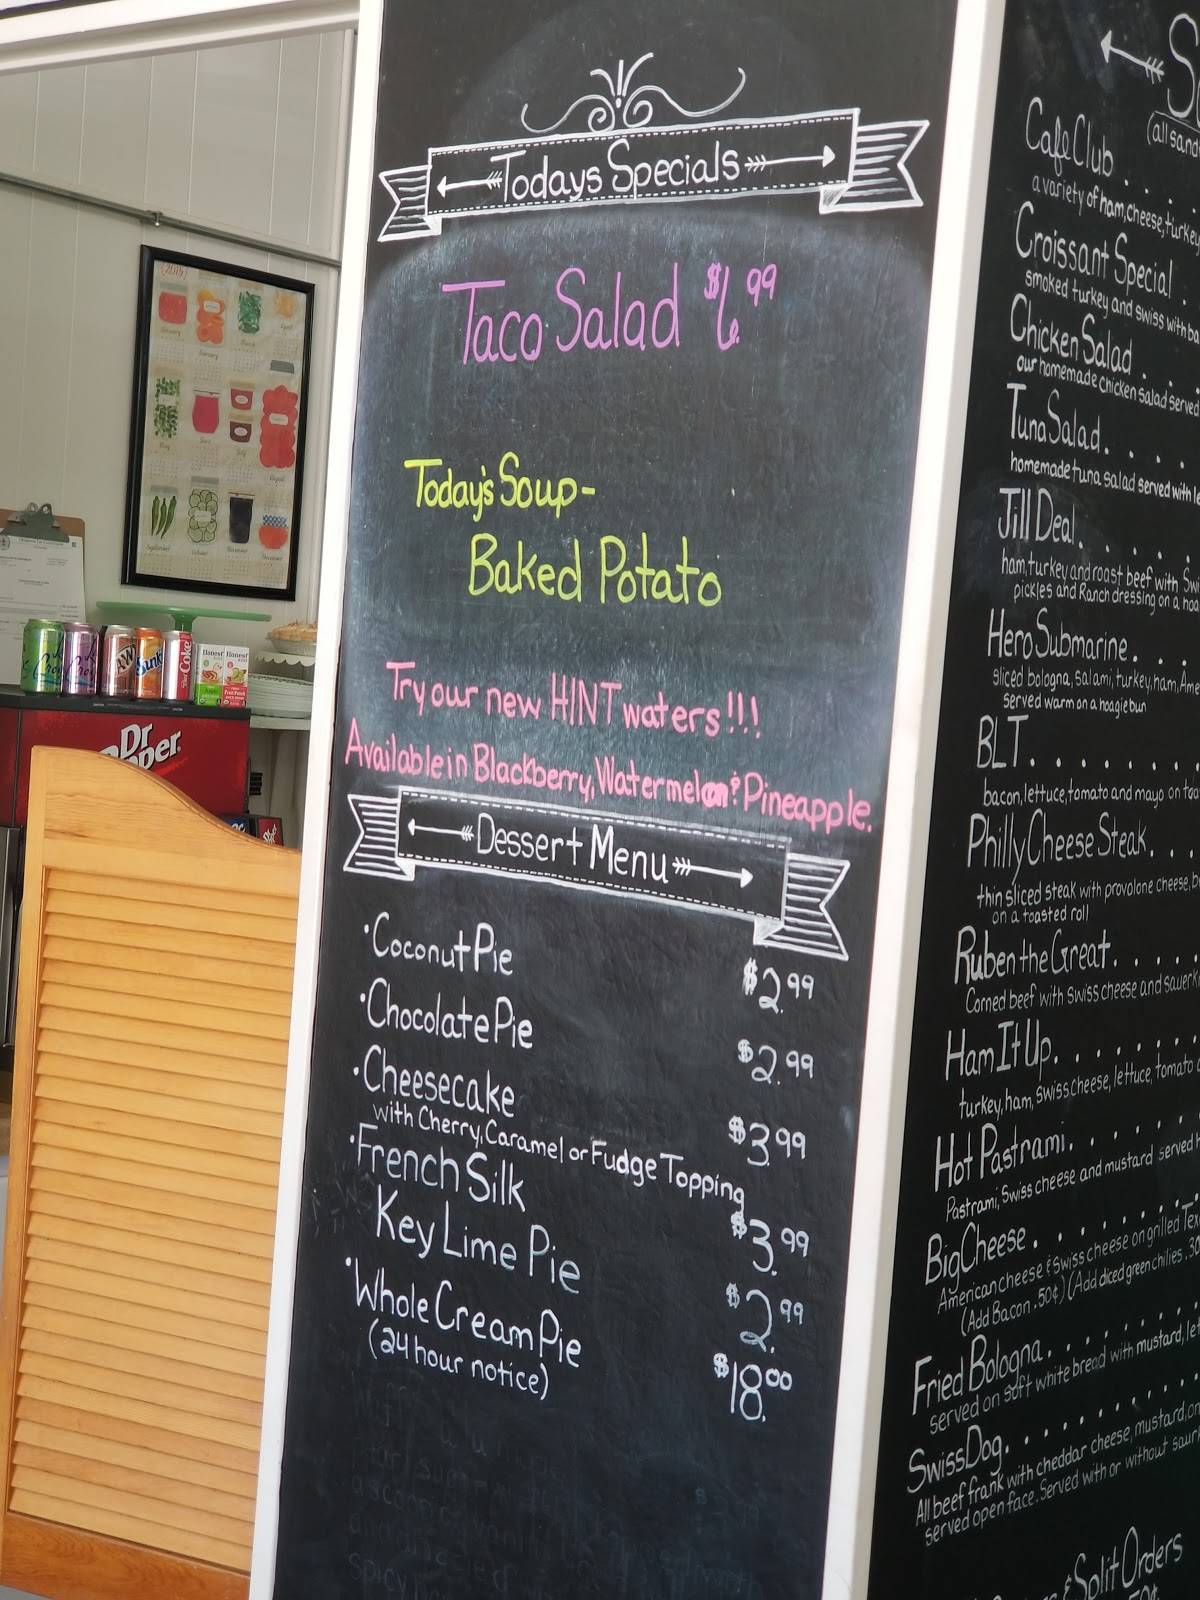 Todays Specials
Taco Salad $6.99
Today's Soup-
Baked Potato
Try our new HINT waters!!!
Available in Blackberry, Watermelon & Pineapple.
Dessert Menu
•Coconut Pie $2.99
•Chocolate Pie $2.99
•Cheesecake $3.99
with Cherry, Caramel or Fudge Topping
•French Silk $3.99
Key Lime Pie $2.99
•Whole Cream Pie $18.00
(24 hour notice)
(all sand
Cafe Club . .
a variety of ham, cheese, turkey
Croissant Special .
smoked turkey and swiss with ba
Chicken Salad . . .
our homemade chicken salad served
Tuna Salad. . . .
homemade tuna salad served with le
Jill Deal. . . . .
ham, turkey and roast beef with Swi
pickles and Ranch dressing on a hoa
Hero Submarine. . .
sliced bologna, salami, turkey, ham, Ame
served warm on a hoagie bun
BLT. . . . . . . .
bacon, lettuce, tomato and mayo on toa
Philly Cheese Steak. . .
thin sliced steak with provolone cheese, be
on a toasted roll
Ruben the Great. . . . .
Corned beef with swiss cheese and sauerk
Ham It Up. . . . . . . .
turkey, ham, swiss cheese, lettuce, tomato
Hot Pastrami. . . . . . .
Pastrami, Swiss cheese and mustard served
Big Cheese. . . . . . . .
American cheese & Swiss cheese on grilled Tex
(Add Bacon .50¢) (Add diced green chilies .30
Fried Bologna. . . . . . .
served on soft white bread with mustard, let
Swiss Dog. . . . . . . . .
All beef frank with cheddar cheese, mustard, on
served open face. Served with or without saur
& Split Orders
.50¢
(2015)
Dr
pper.
A&W
Sunk
Coke
Honest
Honest